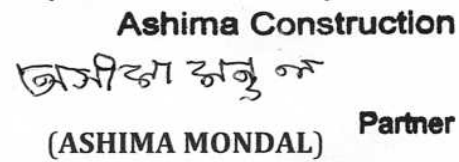 Ashima Construction
অসীমা মন্ডল
Partner
(ASHIMA MONDAL)